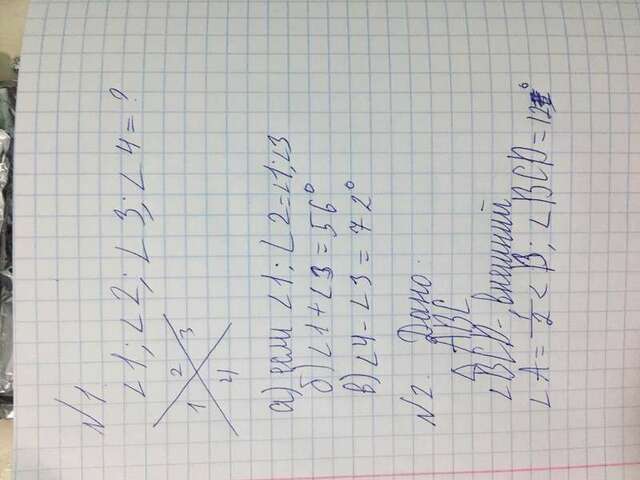 №1.
∠1; ∠2; ∠3; ∠4 = ?
2
1 3
4
а) если ∠1; ∠2 = ∠1; ∠3
б) ∠1 + ∠3 = 56°
в) ∠4 - ∠3 = 72°
№2. Дано
△ ABC
∠BCD-, внешний
∠A = 1/2 < B; ∠BCD =